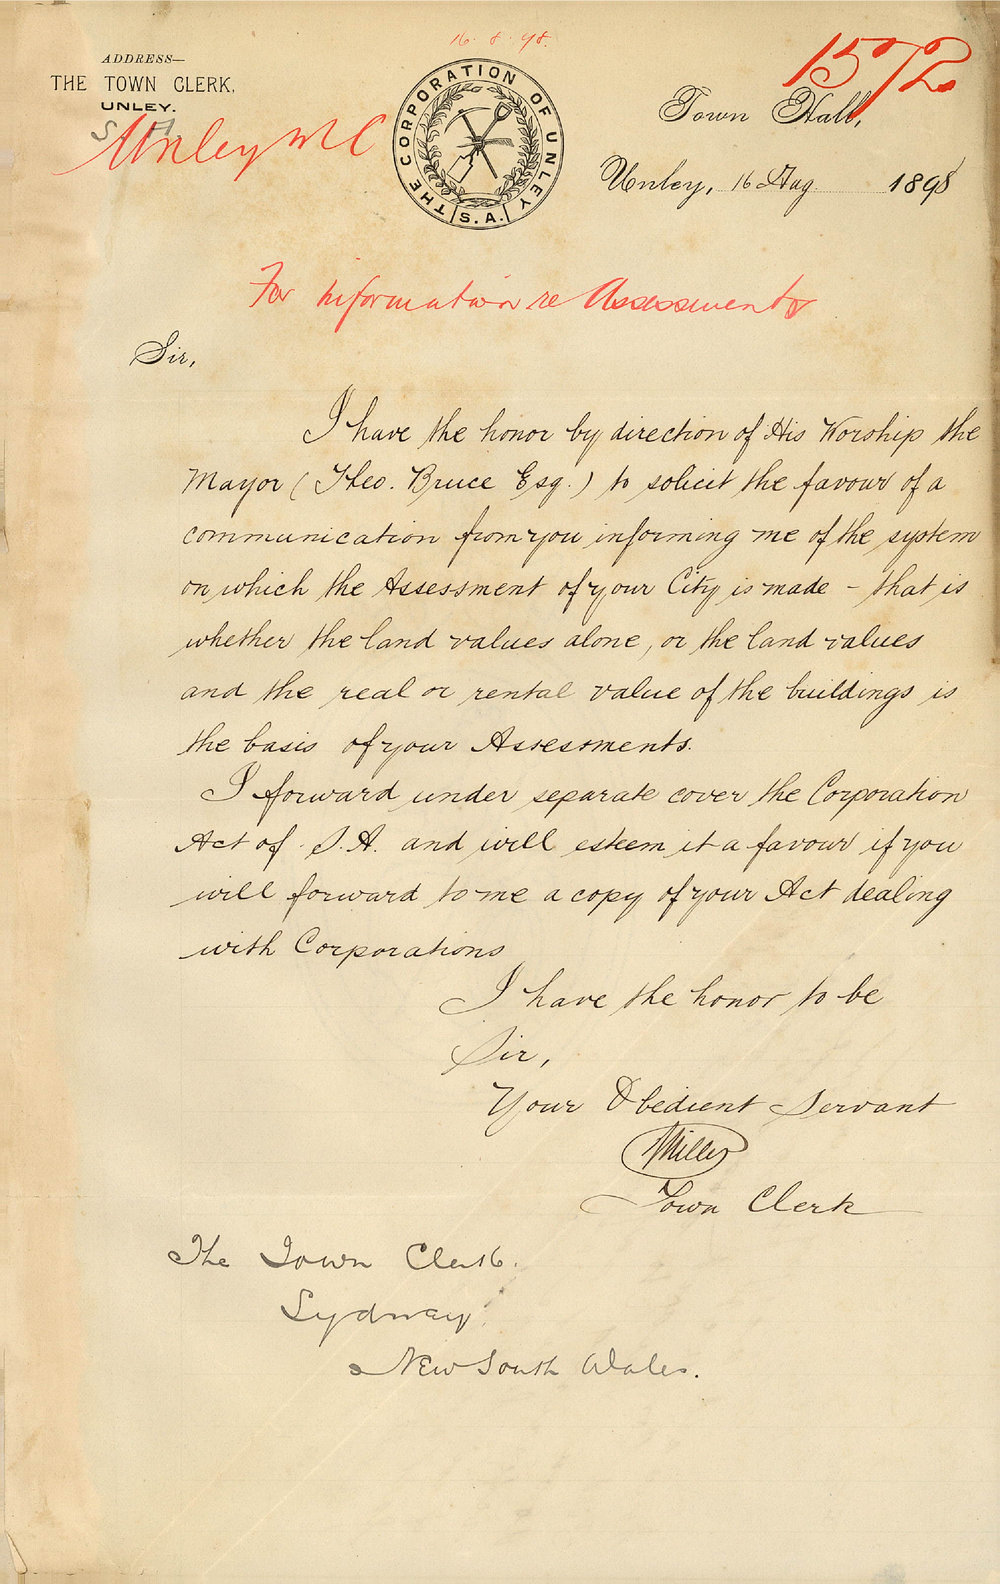 16.8.98.
1572
ADDRESS—
THE TOWN CLERK,
UNLEY.
S A
Unley M C
THE CORPORATION OF UNLEY
S.A.
Town Hall,
Unley, 16 Aug 1898
For information re Assessments
Sir,
I have the honor by direction of His Worship the
Mayor (Theo. Bruce Esq.) to solicit the favour of a
communication from you informing me of the system
on which the Assessment of your City is made - that is
whether the land values alone, or the land values
and the real or rental value of the buildings is
the basis of your Assessments.
I forward under separate cover the Corporation
Act of S.A. and will esteem it a favour if you
will forward to me a copy of your Act dealing
with Corporations
I have the honor to be
Sir,
Your Obedient Servant
Miller
Town Clerk
The Town Clerk.
Sydney.
New South Wales.